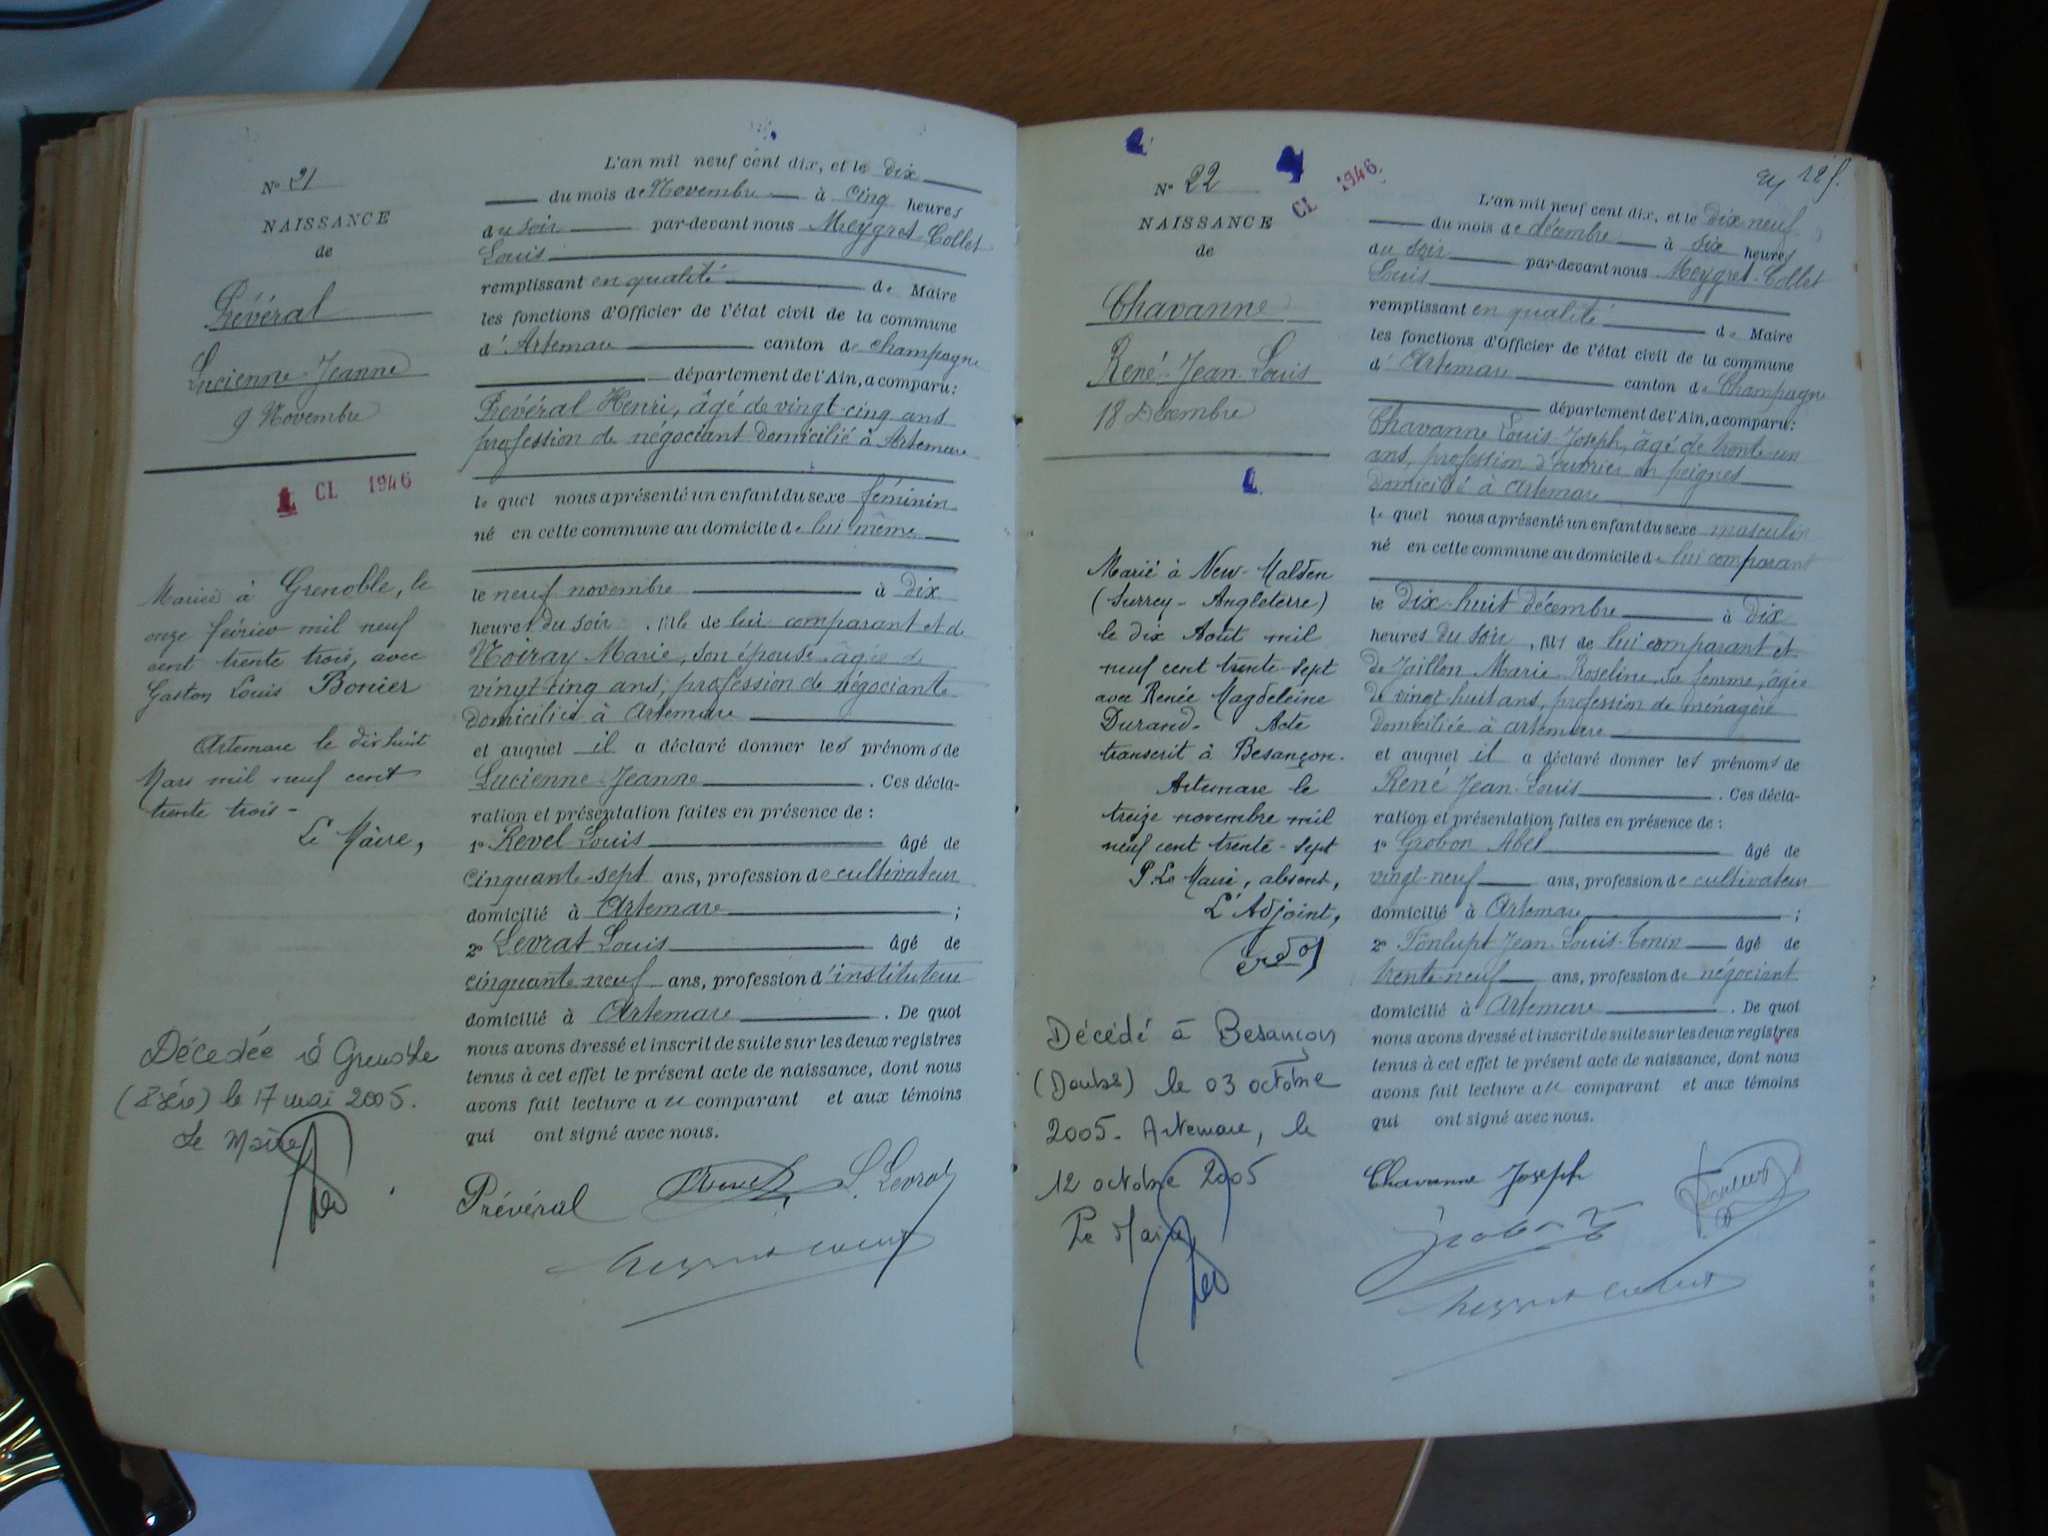 N° 21
NAISSANCE
de
Prévéral
Lucienne-Jeanne
9 Novembre
1 CL 1946
Mariée à Grenoble, le
onze février mil neuf
cent trente trois, avec
Gaston Louis Bonier
Artemare le dix huit
Mars mil neuf cent
trente trois -
Le Maire,
Décédée à Grenoble
(Isère) le 17 mai 2005.
Le Maire
L'an mil neuf cent dix, et le dix
du mois de Novembre à cinq heures
du soir par-devant nous Meygret-Collet
Louis
remplissant en qualité de Maire
les fonctions d'Officier de l'état civil de la commune
d'Artemare canton de Champagne
département de l'Ain, a comparu:
Prévéral Henri, âgé de vingt-cinq ans
profession de négociant domicilié à Artemare
le quel nous a présenté un enfant du sexe féminin
né en cette commune au domicile de lui même
le neuf novembre à dix
heures du soir, fille de lui comparant et de
Noiray Marie, son épouse âgée de
vingt-cinq ans, profession de négociante
domiciliée à Artemare
et auquel il a déclaré donner les prénoms de
Lucienne-Jeanne . Ces décla-
ration et présentation faites en présence de :
1° Revel Louis âgé de
cinquante-sept ans, profession de cultivateur
domicilié à Artemare ;
2° Levrat Louis âgé de
cinquante neuf ans, profession d'instituteur
domicilié à Artemare . De quoi
nous avons dressé et inscrit de suite sur les deux registres
tenus à cet effet le présent acte de naissance, dont nous
avons fait lecture au comparant et aux témoins
qui ont signé avec nous.
Prévéral Revel L. Levrat
Meygret-Collet
N° 22
CL 1946
NAISSANCE
de
Chavanne
René-Jean-Louis
18 Décembre
1
Marié à New-Malden
(Surrey-Angleterre)
le dix Août mil
neuf cent trente-sept
avec Renée Magdeleine
Durand. Acte
transcrit à Besançon.
Artemare le
treize novembre mil
neuf cent trente-sept
P. Le Maire, absent,
L'Adjoint,
Décédé à Besançon
(Doubs) le 03 octobre
2005. Artemare, le
12 octobre 2005
Le Maire
L'an mil neuf cent dix, et le dix neuf
du mois de décembre à six heures
du soir par-devant nous Meygret-Collet
Louis
remplissant en qualité de Maire
les fonctions d'Officier de l'état civil de la commune
d'Artemare canton de Champagne
département de l'Ain, a comparu:
Chavanne Louis-Joseph, âgé de trente-un
ans, profession d'ouvrier en peignes
domicilié à Artemare
le quel nous a présenté un enfant du sexe masculin
né en cette commune au domicile de lui comparant
le dix-huit décembre à dix
heures du soir, fils de lui comparant et
de Jaillon Marie Roseline, sa femme, âgée
de vingt huit ans, profession de ménagère
domiciliée à Artemare
et auquel il a déclaré donner les prénoms de
René Jean-Louis . Ces décla-
ration et présentation faites en présence de :
1° Grobon Abel âgé de
vingt-neuf ans, profession de cultivateur
domicilié à Artemare ;
2° Tonlupt Jean-Louis-Tonin âgé de
trente neuf ans, profession de négociant
domicilié à Artemare . De quoi
nous avons dressé et inscrit de suite sur les deux registres
tenus à cet effet le présent acte de naissance, dont nous
avons fait lecture au comparant et aux témoins
qui ont signé avec nous.
Chavanne Joseph
Grobon
Meygret-Collet